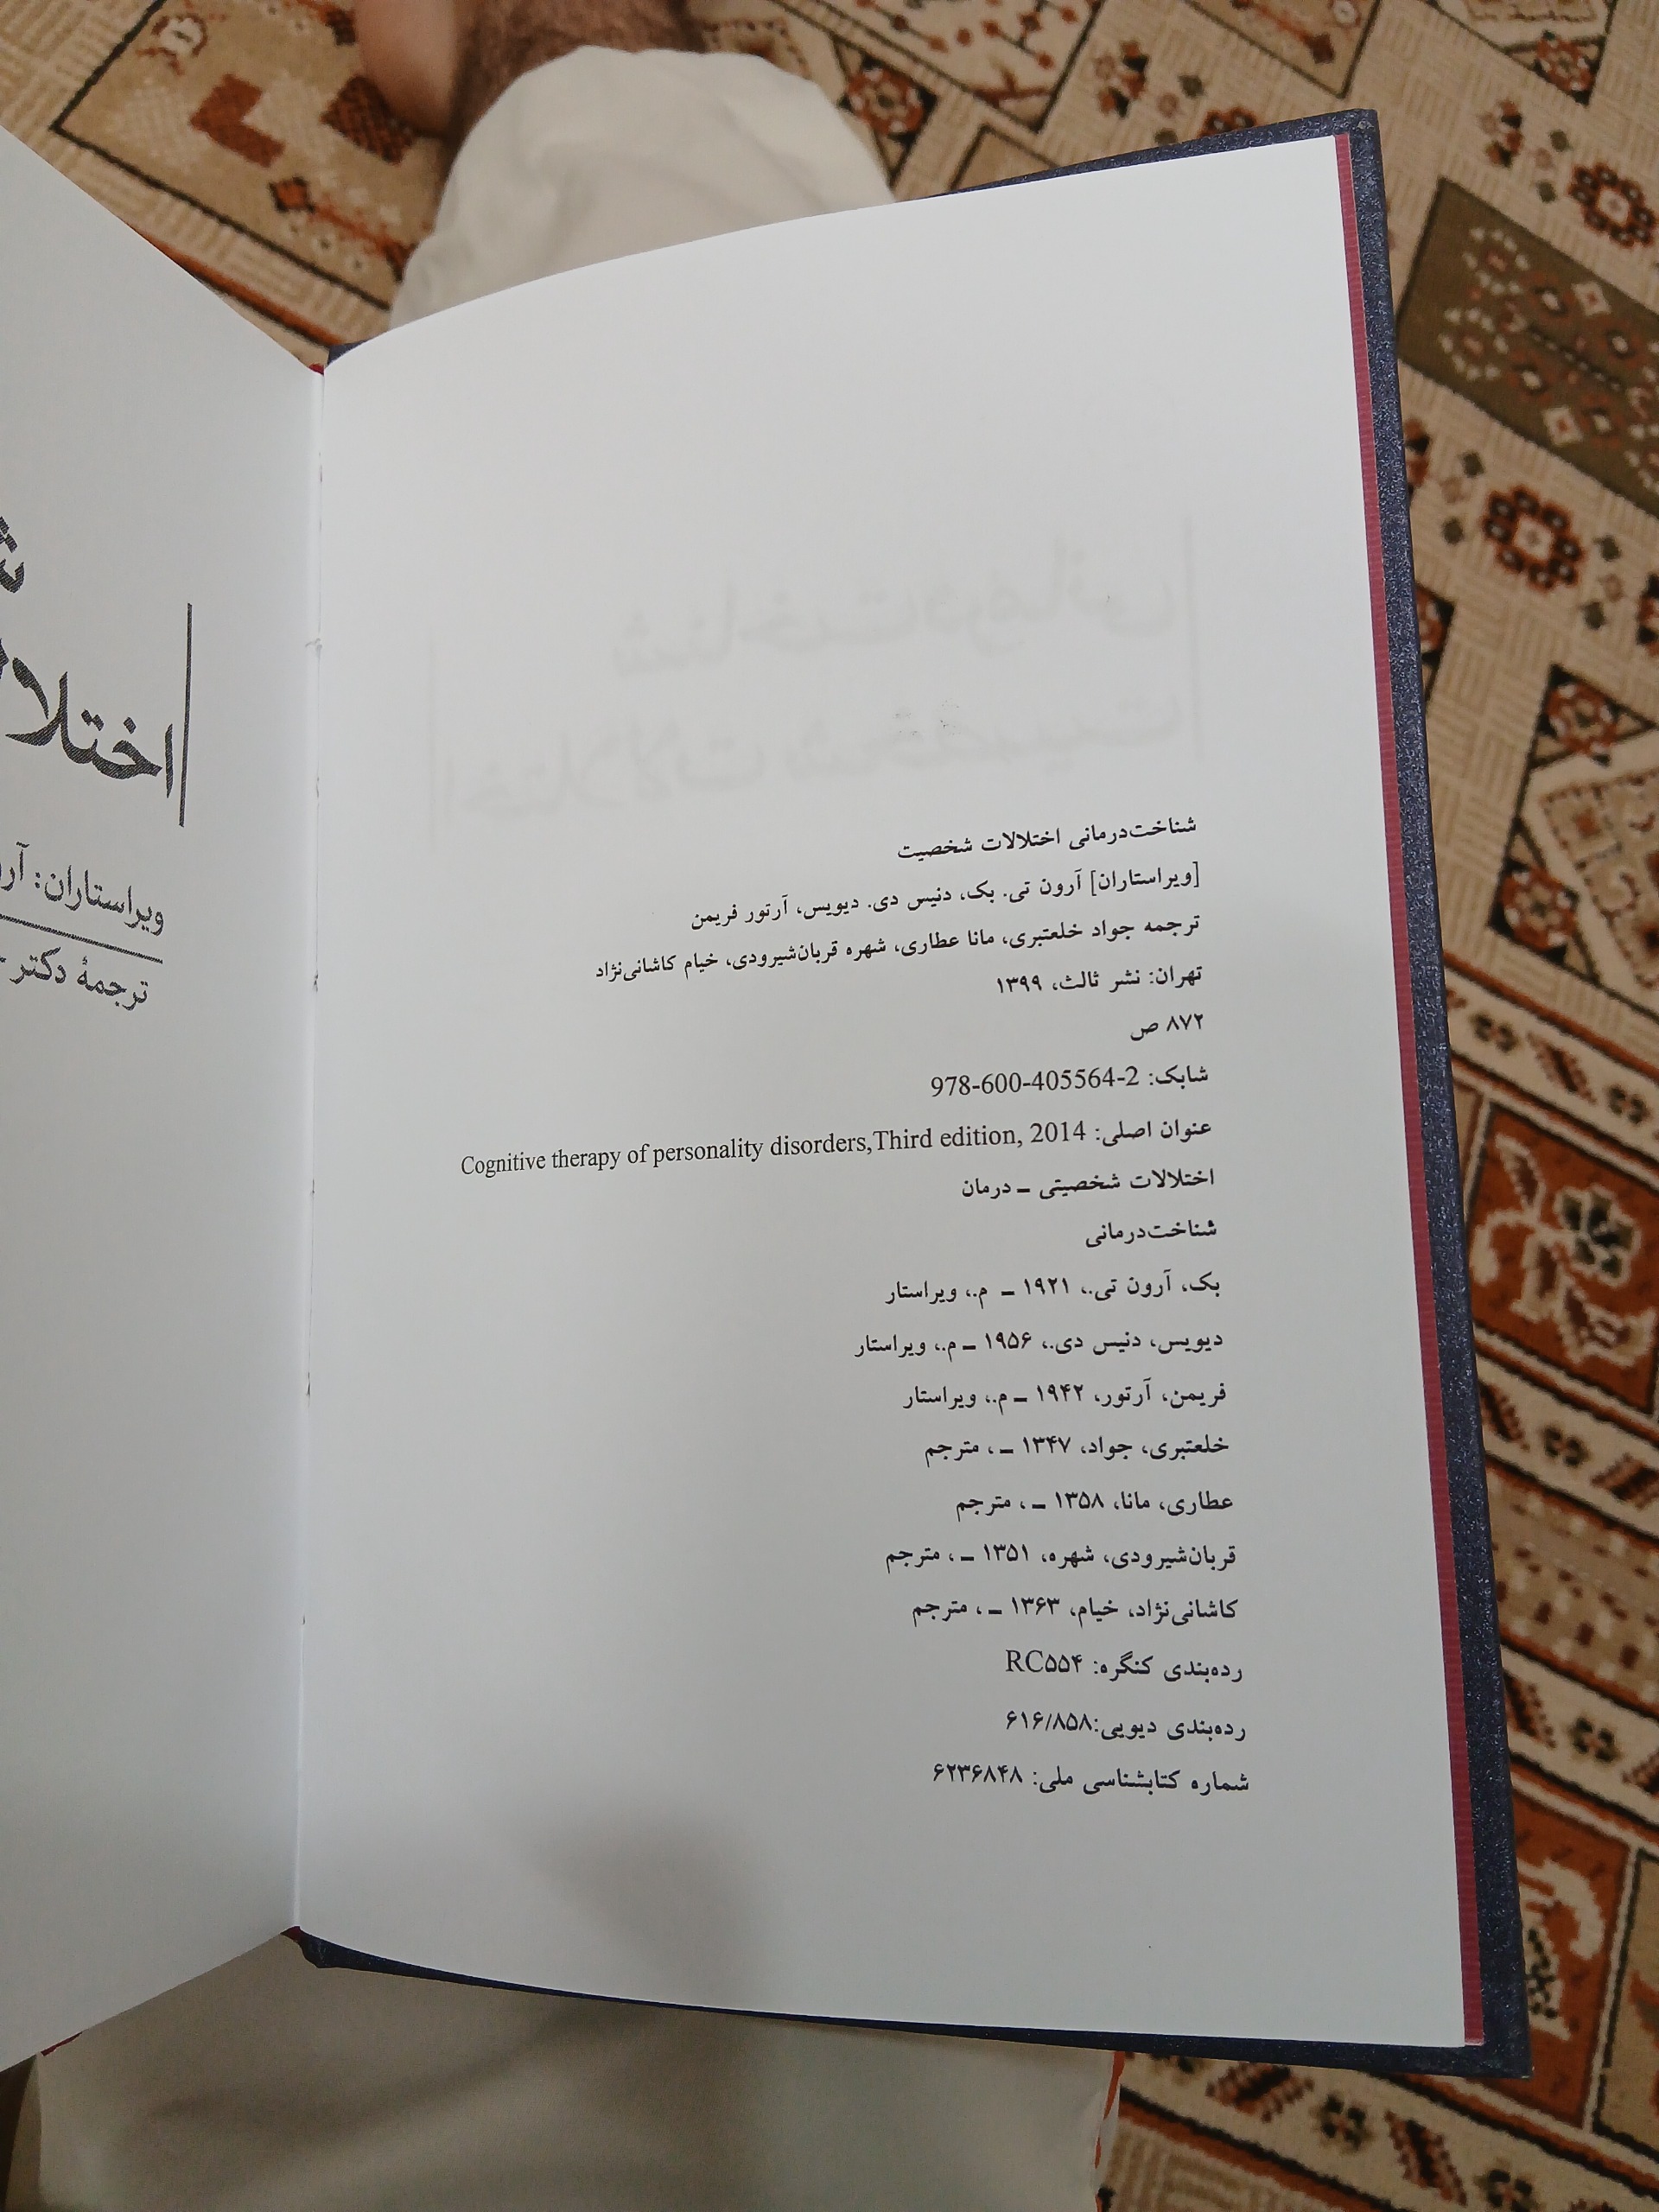 شناخت‌درمانی اختلالات شخصیت
[ویراستاران] آرون تی. بک، دنیس دی. دیویس، آرتور فریمن
ترجمه جواد خلعتبری، مانا عطاری، شهره قربان‌شیرودی، خیام کاشانی‌نژاد
تهران: نشر ثالث، ۱۳۹۹
۸۷۲ ص
شابک: 978-600-405564-2
عنوان اصلی: Cognitive therapy of personality disorders,Third edition, 2014
اختلالات شخصیتی ـ درمان
شناخت‌درمانی
بک، آرون تی.، ۱۹۲۱ ـ م.، ویراستار
دیویس، دنیس دی.، ۱۹۵۶ ـ م.، ویراستار
فریمن، آرتور، ۱۹۴۲ ـ م.، ویراستار
خلعتبری، جواد، ۱۳۴۷ ـ ، مترجم
عطاری، مانا، ۱۳۵۸ ـ ، مترجم
قربان‌شیرودی، شهره، ۱۳۵۱ ـ ، مترجم
کاشانی‌نژاد، خیام، ۱۳۶۳ ـ ، مترجم
رده‌بندی کنگره: RC۵۵۴
رده‌بندی دیویی:۶۱۶/۸۵۸
شماره کتابشناسی ملی: ۶۲۳۶۸۴۸
ویراستاران:
ترجمهٔ دکتر